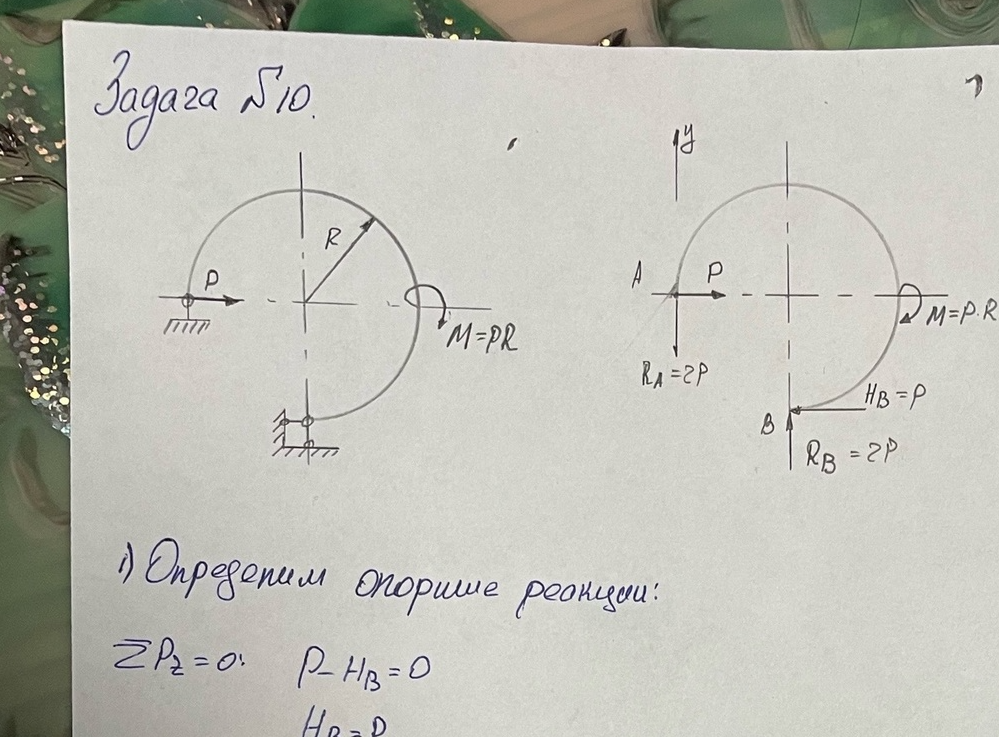 Задача №10.
y
R
P
A
P
M=PR
M=P·R
R_A=2P
H_B=P
B
R_B=2P
1) Определим опорные реакции:
ΣP_z=0: P-H_B=0
H_B=P